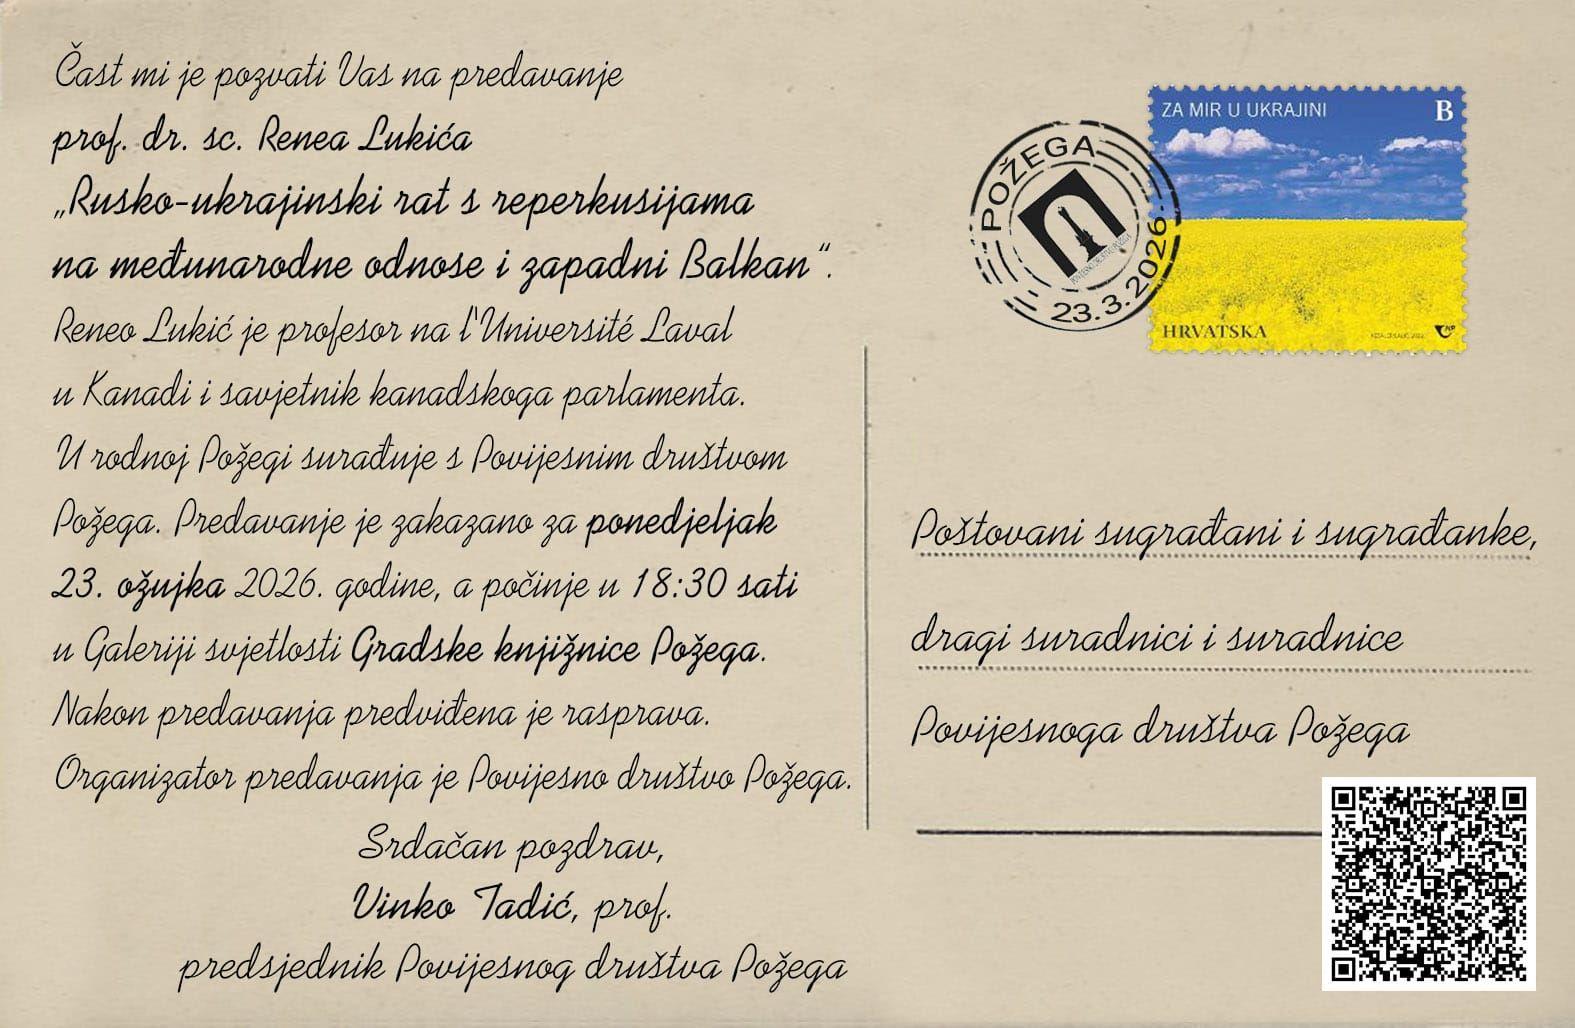 Čast mi je pozvati Vas na predavanje
prof. dr. sc. Renea Lukića
„Rusko-ukrajinski rat s reperkusijama
na međunarodne odnose i zapadni Balkan“.
Reneo Lukić je profesor na l'Université Laval
u Kanadi i savjetnik kanadskoga parlamenta.
U rodnoj Požegi surađuje s Povijesnim društvom
Požega. Predavanje je zakazano za ponedjeljak
23. ožujka 2026. godine, a počinje u 18:30 sati
u Galeriji svjetlosti Gradske knjižnice Požega.
Nakon predavanja predviđena je rasprava.
Organizator predavanja je Povijesno društvo Požega.
Srdačan pozdrav,
Vinko Tadić, prof.
predsjednik Povijesnog društva Požega
POŽEGA
23.3.2026.
ZA MIR U UKRAJINI B
HRVATSKA
Poštovani sugrađani i sugrađanke,
dragi suradnici i suradnice
Povijesnoga društva Požega